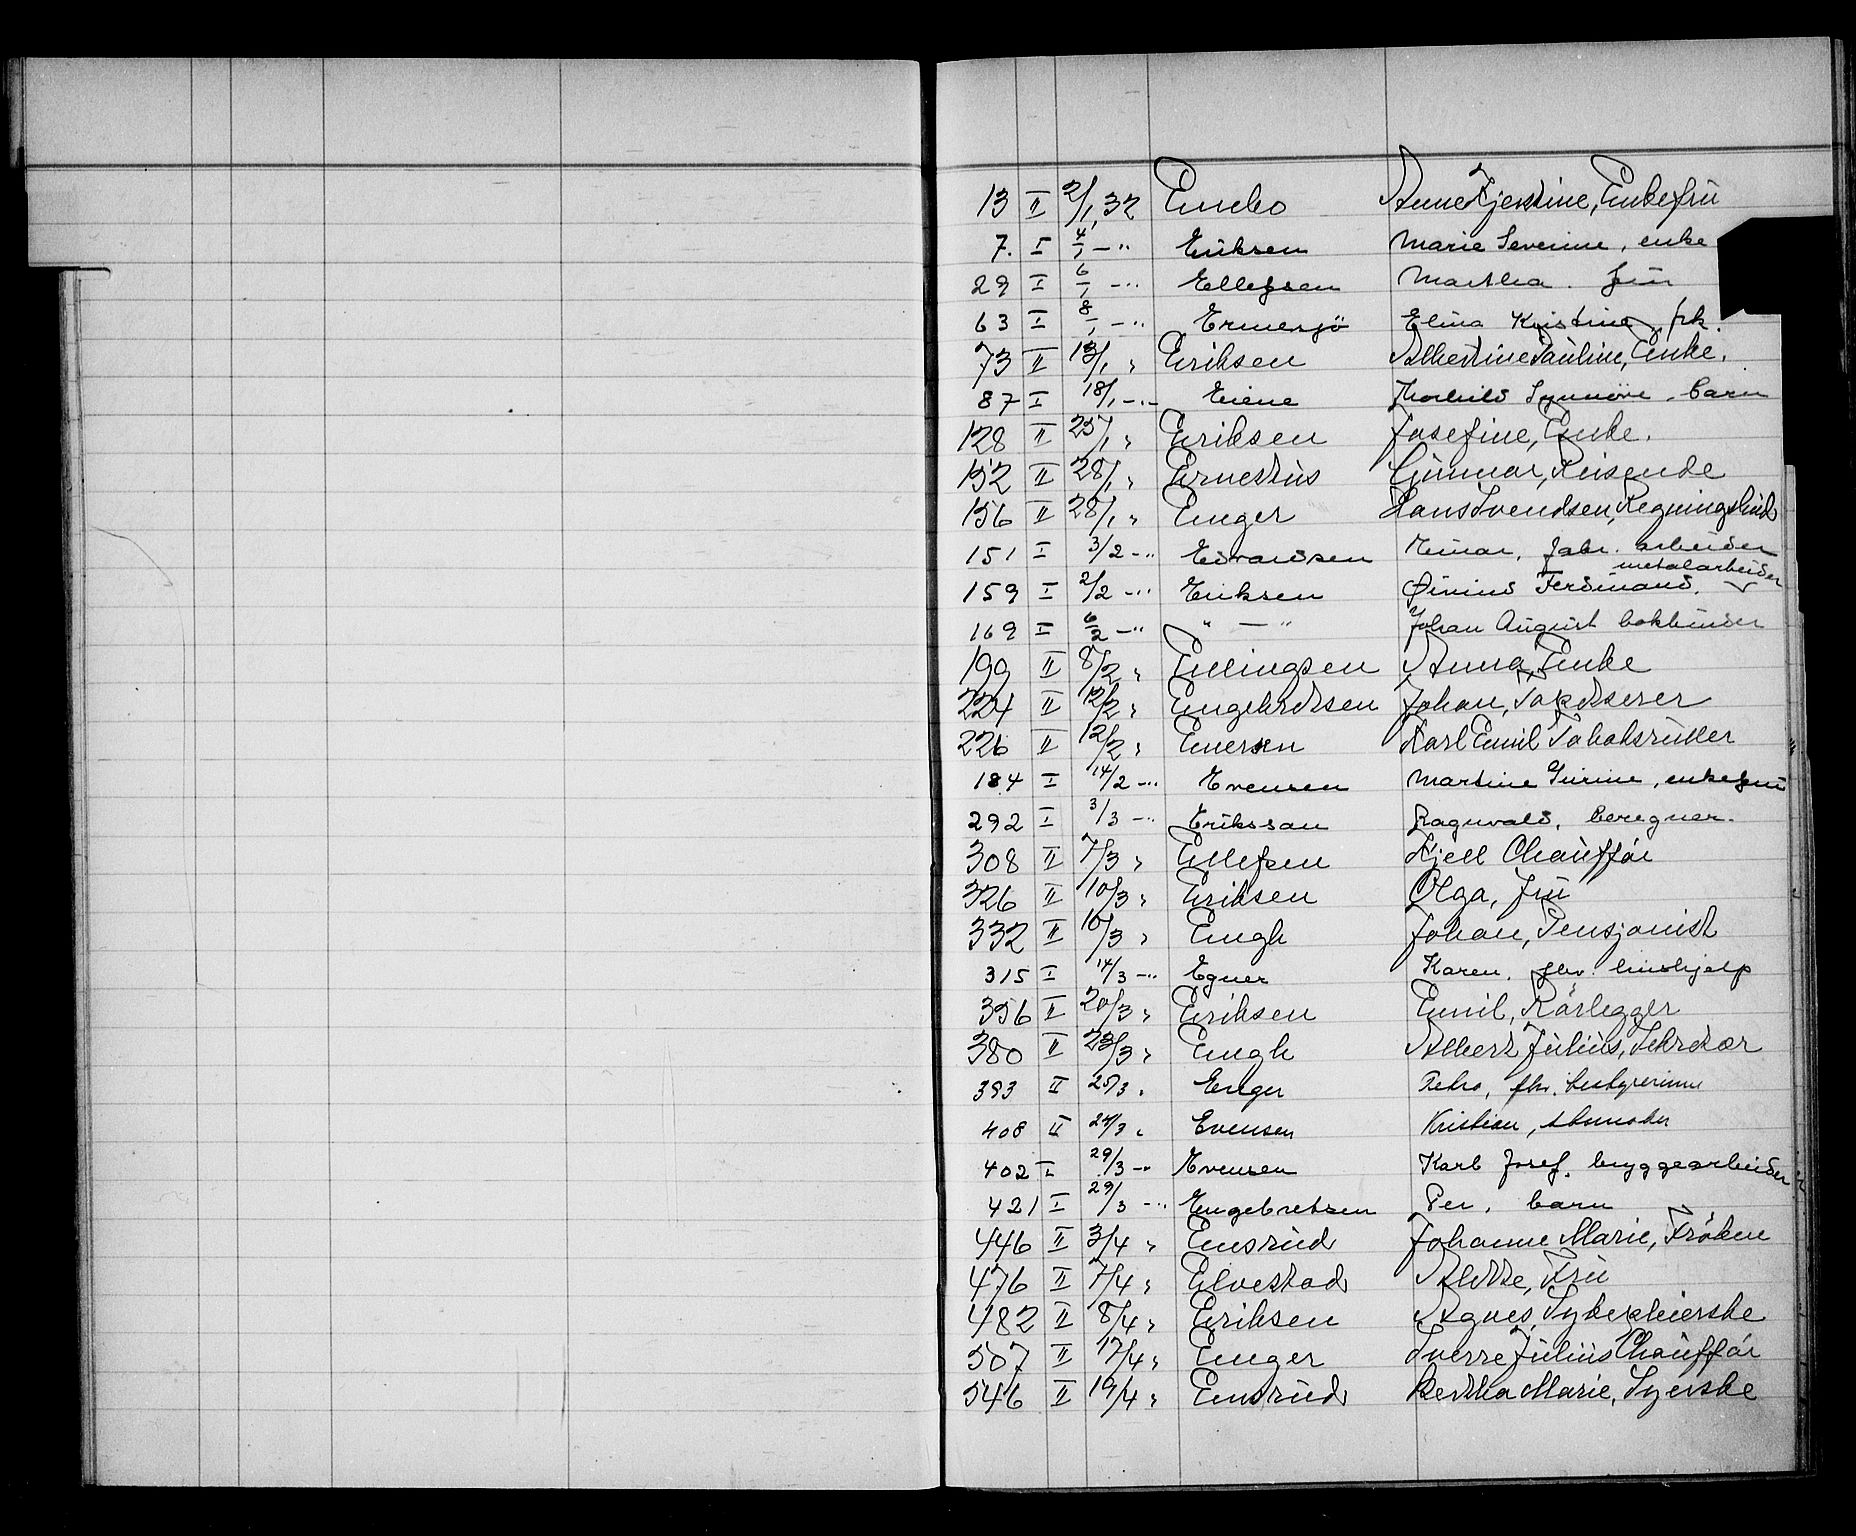 13 II 2/1 32 Enebo Anne Kjerstine, Enkefru
7. I 4/1 -" Eriksen Marie Severine, enke
29 I 6/1 -" Ellefsen Martha. fru
63 I 8/1 -" Ermesjö Elina Kristine, frk.
73 II 13/1 " Eriksen Albertine Pauline, Enke.
87 I 18/1 -" Eiene Thorhild Synnöve. barn
128 II 25/1 " Eriksen Josefine, Enke.
152 II 28/1 " Ernestus Gunnar, Reisende
156 II 28/1 " Enger Hans Svendsen, Regningsbud
151 I 3/2 -" Edvardsen Einar, fabr. arbeider
159 I 2/2 -" Eriksen Øivind Ferdinand. metalarbeider
169 I 6/2 -" " — " Johan August bokbinder
199 II 8/2 " Ellingsen Anna, Enke
224 II 12/2 " Engebretsen Johan, Tapetserer
226 II 12/2 " Enersen Karl Emil Tobaksruller
184 I 14/2 -" Evensen Martine Gurine, enkefru
292 I 3/3 -" Eriksson Ragnvald, beregner.
308 II 7/3 " Ellefsen Kjell Chauffør
326 II 10/3 " Eriksen Olga, Fru
332 II 10/3 " Engh Johan, Pensjonist
315 I 14/3 -" Egner Karen. fhv. hushjelp
356 II 20/3 " Eriksen Emil, Rørlegger
380 II 23/3 " Engh Albert Julius, Sekretær
393 II 25/3 " Enger Petra, fhv. bestyrerinne
408 II 24/3 " Evensen Kristian, skomaker
402 I 29/3 -" Evensen Karl Josef, bryggearbeider
421 I 29/3 -" Engebretsen Per, barn
446 II 3/4 " Ensrud Johanne Marie, Frøken
476 II 7/4 " Elvestad Alette, Fru
482 II 8/4 " Eriksen Agnes, Sykepleierske
507 II 17/4 " Enger Sverre Julius Chauffør
546 II 19/4 " Ensrud Bertha Marie, Syerske